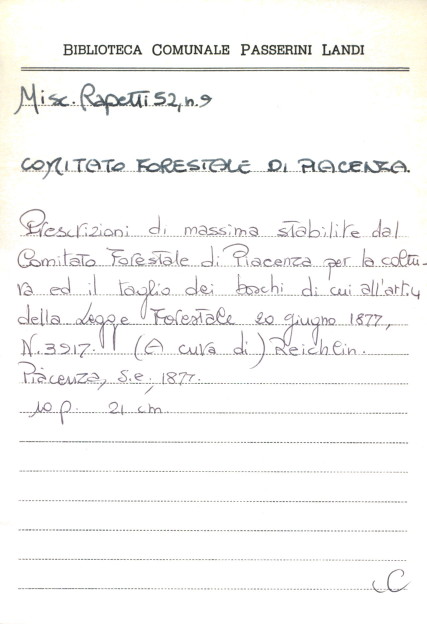 BIBLIOTECA COMUNALE PASSERINI LANDI
Misc. Rapetti 52, n. 9
COMITATO FORESTALE DI PIACENZA.
Prescrizioni di massima stabilite dal
Comitato Forestale di Piacenza per la coltu-
ra ed il taglio dei boschi di cui all'art 4
della Legge Forestale 20 giugno 1877,
N. 3917. (A cura di) Reichlin.
Piacenza, s.e., 1877.
10 p. 21 cm
C